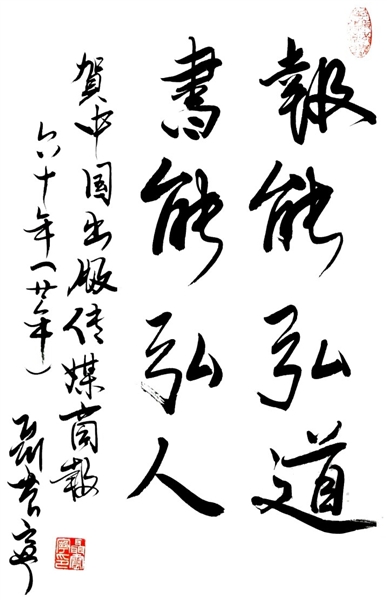 報能弘道
書能弘人
賀中国出版传媒商報
六十年(廿年)
聂震寧